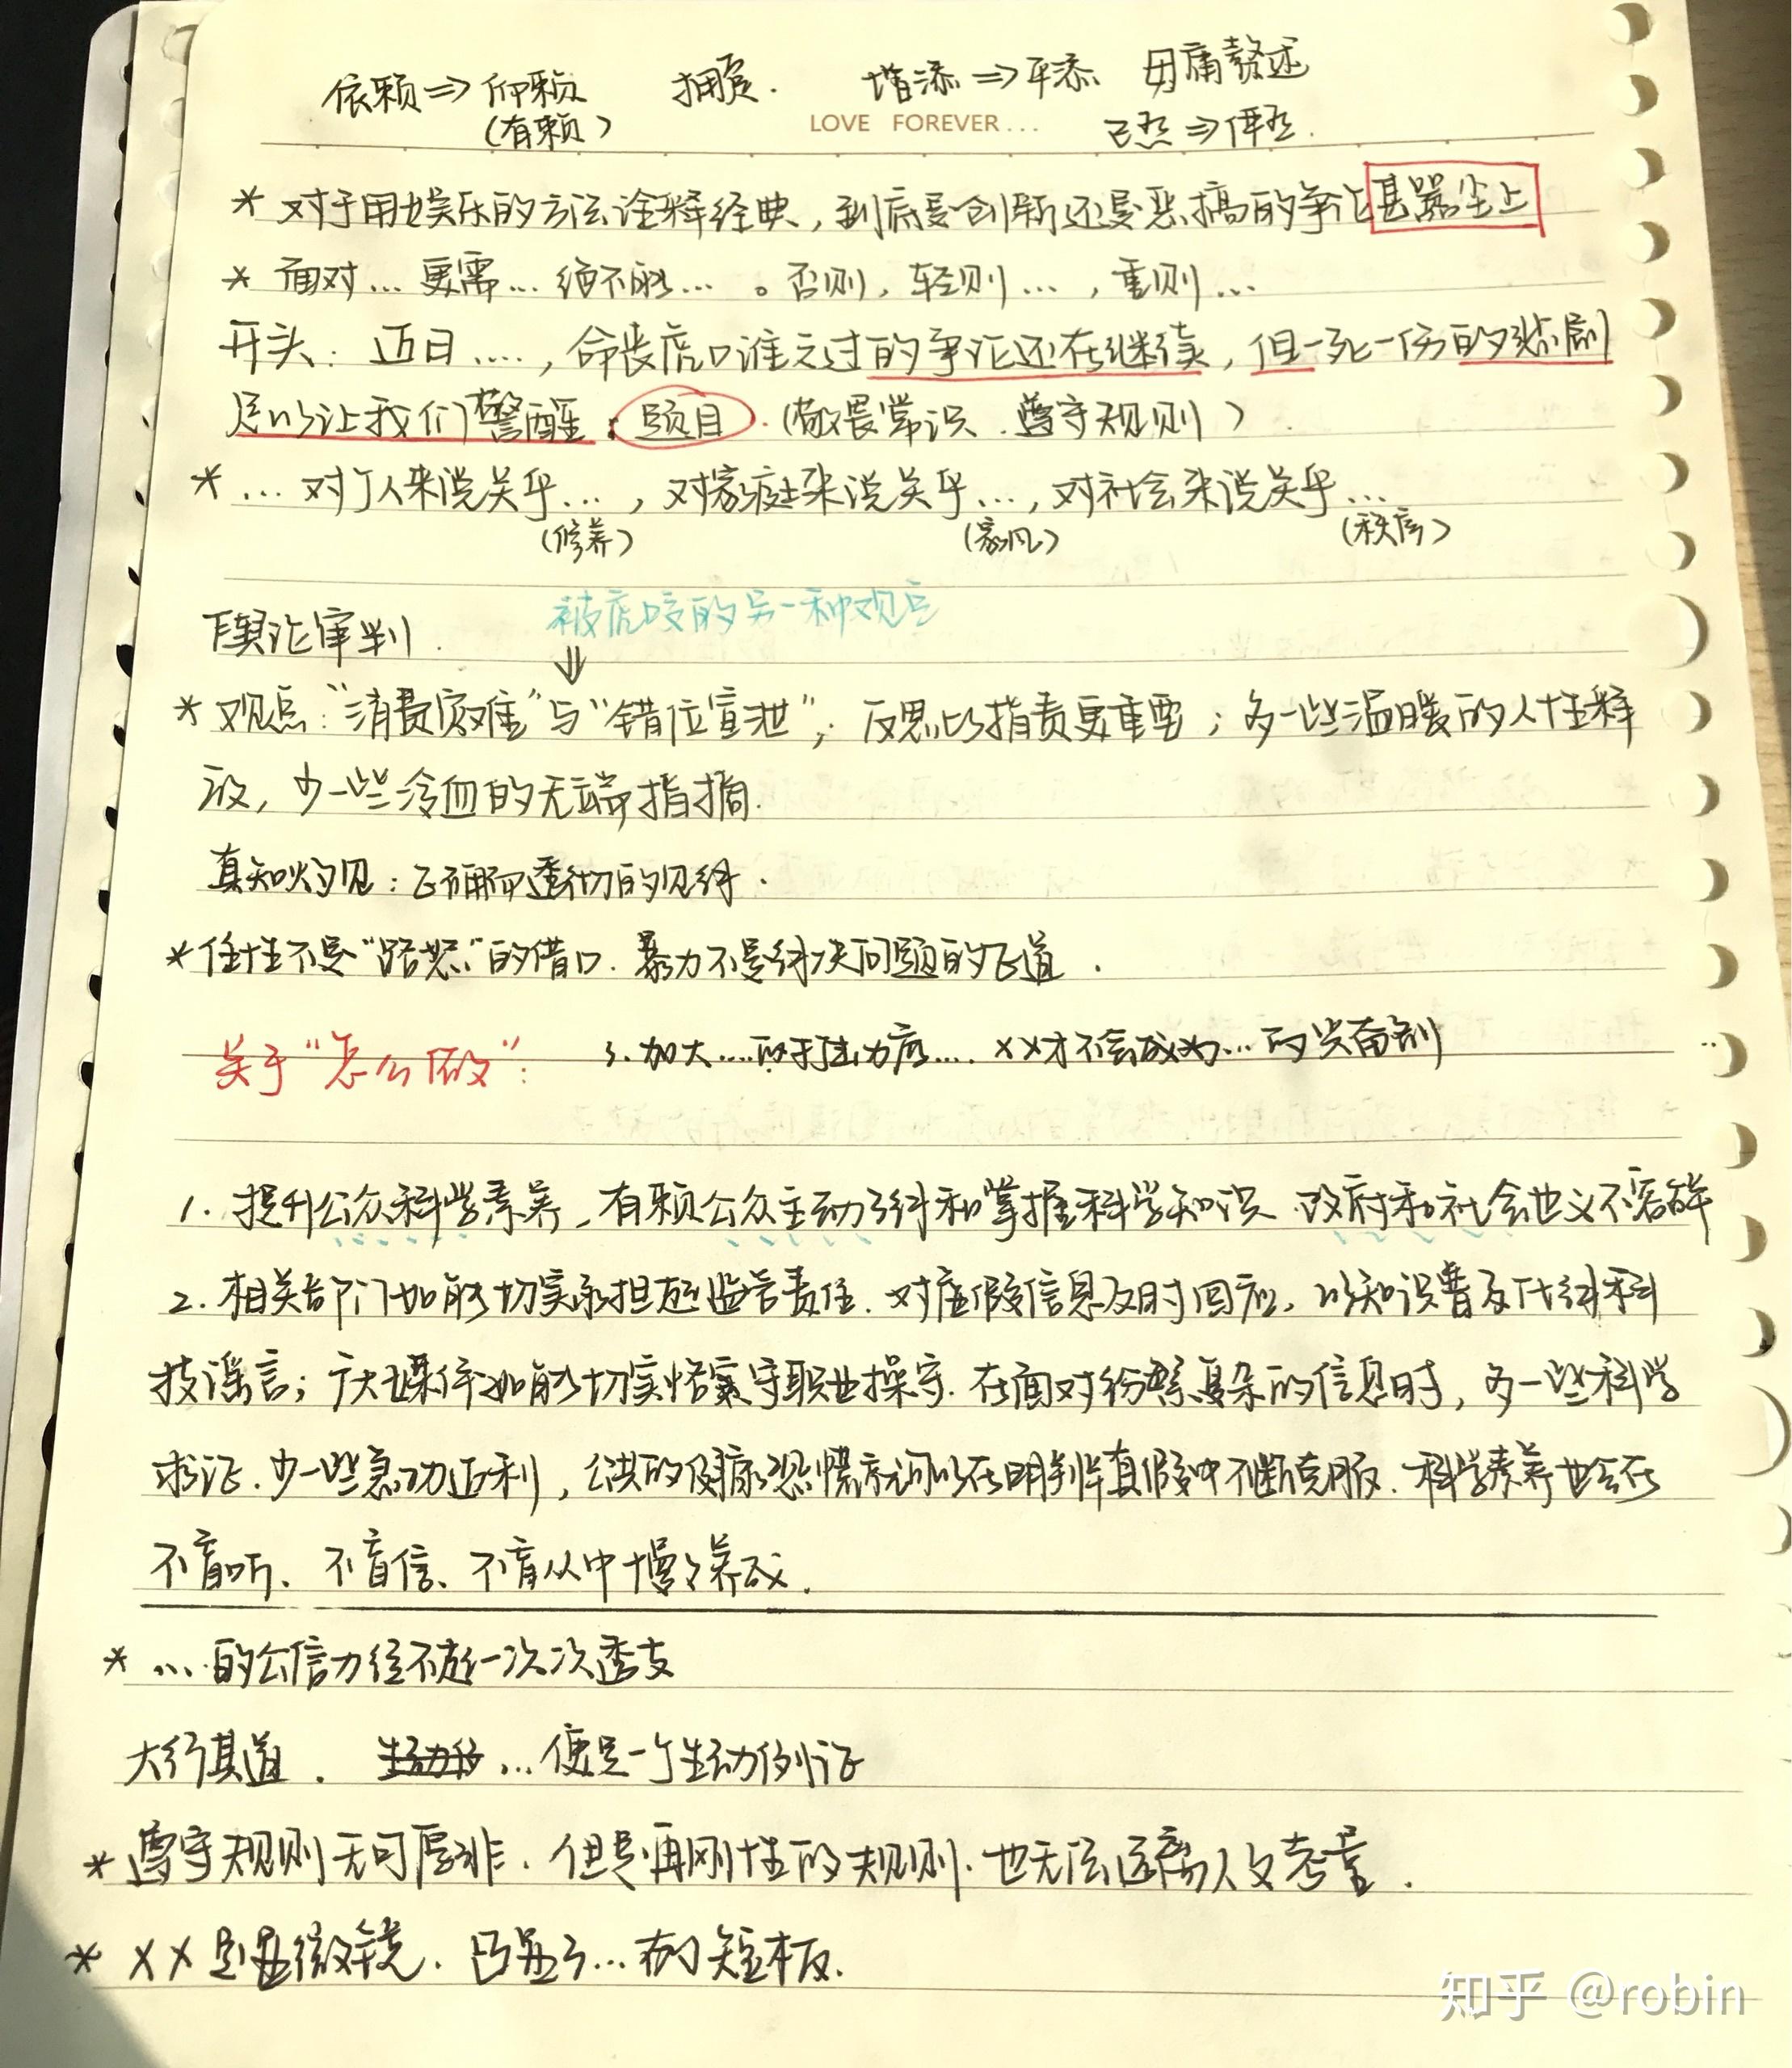 依赖⇒仰赖 拥趸. 增添⇒平添 毋庸赘述
(有赖) LOVE FOREVER... 已然⇒俨然.
* 对于用娱乐的方法诠释经典,到底是创新还是恶搞的争论甚嚣尘上
* 面对…更需…绝不能…。否则,轻则…,重则…
开头:近日….,命丧虎口谁之过的争论还在继续,但一死一伤的悲剧
足以让我们警醒:题目.(敬畏常识.遵守规则)
* …对个人来说关乎…,对家庭来说关乎…,对社会来说关乎…
(修养) (家风) (秩序)
舆论审判. 被虎咬的另一种观点
⇓
* 观点:“消费灾难”与“错位宣泄”;反思比指责更重要;多一些温暖的人性释
放,少一些冷血的无端指摘.
真知灼见:正确而透彻的见解.
* 任性不是“路怒”的借口.暴力不是解决问题的正道.
关于“怎么做”: 3.加大….的打击力度….××才不会成为…的兴奋剂
1. 提升公众科学素养,有赖公众主动了解和掌握科学知识.政府和社会也义不容辞
2. 相关部门如能切实承担起监管责任.对虚假信息及时回应,以知识普及化解科
技谣言;广大媒体如能切实恪守职业操守.在面对纷繁复杂的信息时,多一些科学
求证.少一些急功近利,公共的健康恐慌就可以在明辨真假中不断克服.科学素养也会在
不盲听、不盲信、不盲从中慢慢养成.
* ….的公信力经不起一次次透支
大行其道. …便是一个生动例证
* 遵守规则无可厚非.但是再刚性的规则.也无法远离人文考量.
* ××是显微镜.凸显了…的短板.
知乎 @robin